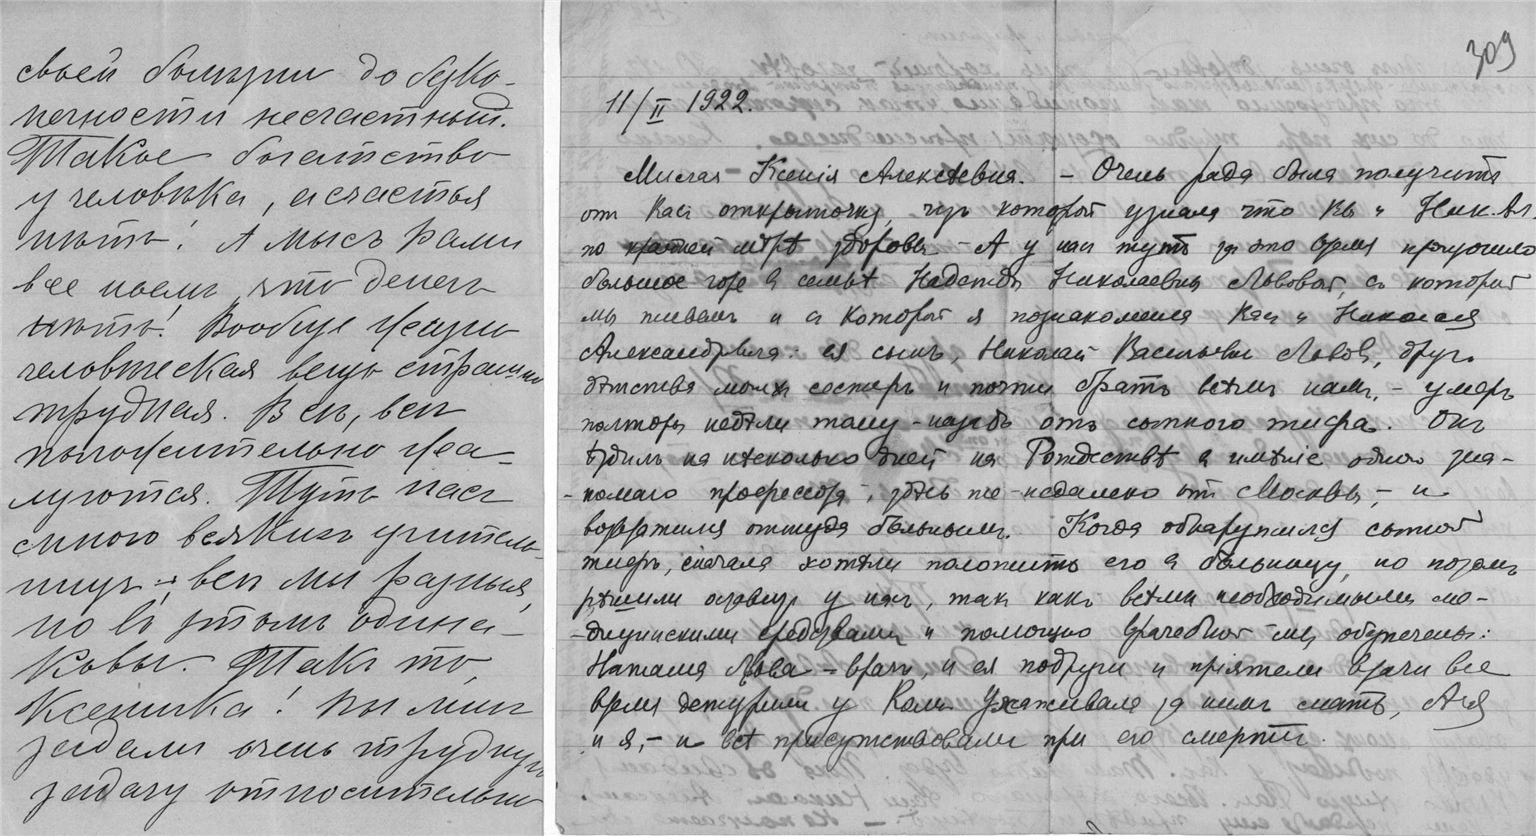 своей болѣзни до безко-
нечности несчастный.
Такое богатство
у человѣка, а счастья
нѣтъ! А мы съ Вами
все ноемъ, что денегъ
нѣтъ! Вообще жизнь
человѣческая вещь страшно
трудная. Всѣ, всѣ
положительно жа-
луются. Тутъ насъ
много всякихъ учитель-
ницъ; всѣ мы разныя,
но въ этомъ одина-
ковы. Такъ то,
Ксеничка! Вы мнѣ
задали очень трудную
задачу относительно
309
11/II 1922.
Милая Ксенія Алексѣевна. – Очень рада была получить
отъ Васъ открыточку, изъ которой узнала что Вы и Ник. Ал.
по крайней мѣрѣ здоровы – А у насъ тутъ за это время произошло
большое горе въ семьѣ Надежды Николаевны Львовой, съ которой
мы живемъ и съ которой я познакомила Васъ и Николая
Александровича: ея сынъ, Николай Васильевичъ Львовъ, другъ
дѣтства моихъ сестеръ и почти братъ всѣмъ намъ, – умеръ
полторы недѣли тому-назадъ отъ сыпного тифа. Онъ
ѣздилъ на нѣсколько дней на Рождествѣ въ имѣніе одного зна-
-комаго профессора, здѣсь же недалеко отъ Москвы, – и
возвратился оттуда больнымъ. Когда обнаружился сыпной
тифъ, сначала хотѣли положить его въ больницу, но потомъ
рѣшили оставить у насъ, такъ какъ всѣми необходимыми ме-
-дицинскими средствами и помощью врачебной мы обезпечены:
Наталія Львова – врачъ, и ея подруги и пріятели врачи все
время дежурили у Коли. Ухаживала за нимъ мать, Ася
и я, – и всѣ присутствовали при его смерти.